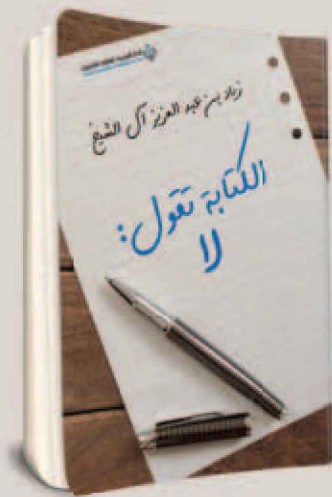 زياد بن عبد العزيز آل الشيخ
الكتابة تقول:
لا